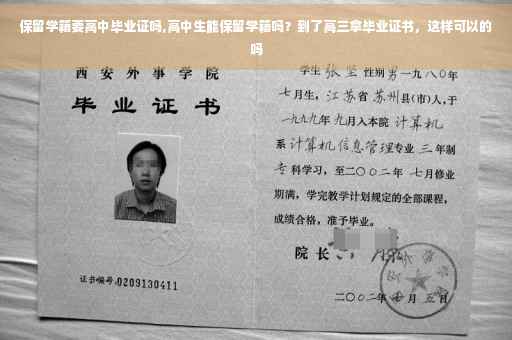 保留学籍要高中毕业证吗,高中生能保留学籍吗？到了高三拿毕业证书，这样可以的
吗
西安外事学院
毕业证书
证书编号:0209130411
学生张坚性别男一九八〇年
七月生，江苏省苏州县(市)人,于
一九九九年九月入本院计算机
系计算机信息管理专业三年制
专科学习，至二〇〇二年七月修业
期满，学完教学计划规定的全部课程，
成绩合格，准予毕业。
院长
二〇〇二年七月五日